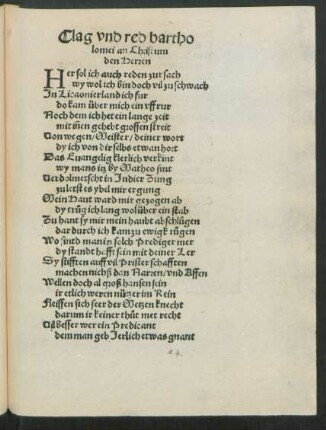 Clag vnd red bartho
lomei an Christum
den Herren
Her sol ich auch reden zur sach
wy wol ich bin doch vil zu schwach
In Licaonierland ich fur
do kam über mich ein vffrur
Noch dem ich het ein lange zeit
mit in gehebt grossen streit
Von wegen / Meister / deiner wort
dy ich von dir selbs etwan hort
Das Euangelig klerlich verkint
wy mans by Matheo fint
Verdolmetscht in Indier Zung
zulest es ybel mir ergung
Mein Haut ward mir gezogen ab
dy trůg ich lang wol über ein stab
Zu hant sy mir mein haubt abschlůgen
dardurch ich kam zu ewigk růgen
Wo sint man solch Prediger mer
dy standt hefft sein mit deiner Ler
Sy stifften auff vil Prister schafften
machen nichß dan Narren / vnd Affen
Wellen doch al groß hansen sein
ir etlich weren nützer im Rein
Fleissen sich seer der Metzen knecht
darum ir keiner thůt met recht
besser wer ein Predicant
dem man geb Jerlich etwas gnant